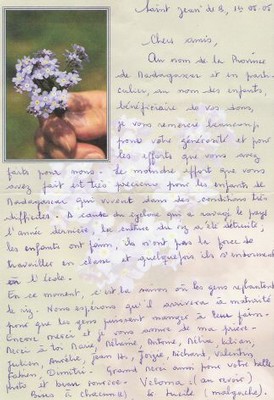 Saint Jean de B, le 06.06.05
Chers amis,
Au nom de la Province
de Madagascar et en parti
culier, au nom des enfants,
bénéficiaire de vos dons,
je vous remercie beaucoup
pour votre générosité et pour
les efforts que vous avez
faits pour nous. Le moindre effort que vous
avez fait est très précieux pour les enfants de
Madagascar qui vivent dans des conditions très
difficiles. A cause du cyclone qui a ravagé le pays
l'année dernière. La culture du riz a été détruite,
les enfants ont faim, ils n'ont pas la force de
travailler en classe et quelquefois ils s'endorment
à l'école.
En ce moment, c'est la saison où les gens replantent
le riz. Nous espérons qu'il arrivera à maturité
pour que les gens puissent manger à leur faim.
Encore merci et je vous assure de ma prière.
Merci à toi Marc, Mélaine, Antoine, Julian,
Julien, Amélie, Jean, Joyce, Richard, Valentin
Fabien, Dimitri. Grand merci aussi pour votre belle
photo et bonne vacance. Veloma (au revoir)
Bises à chacun(e). Sr Lucile (malgache).